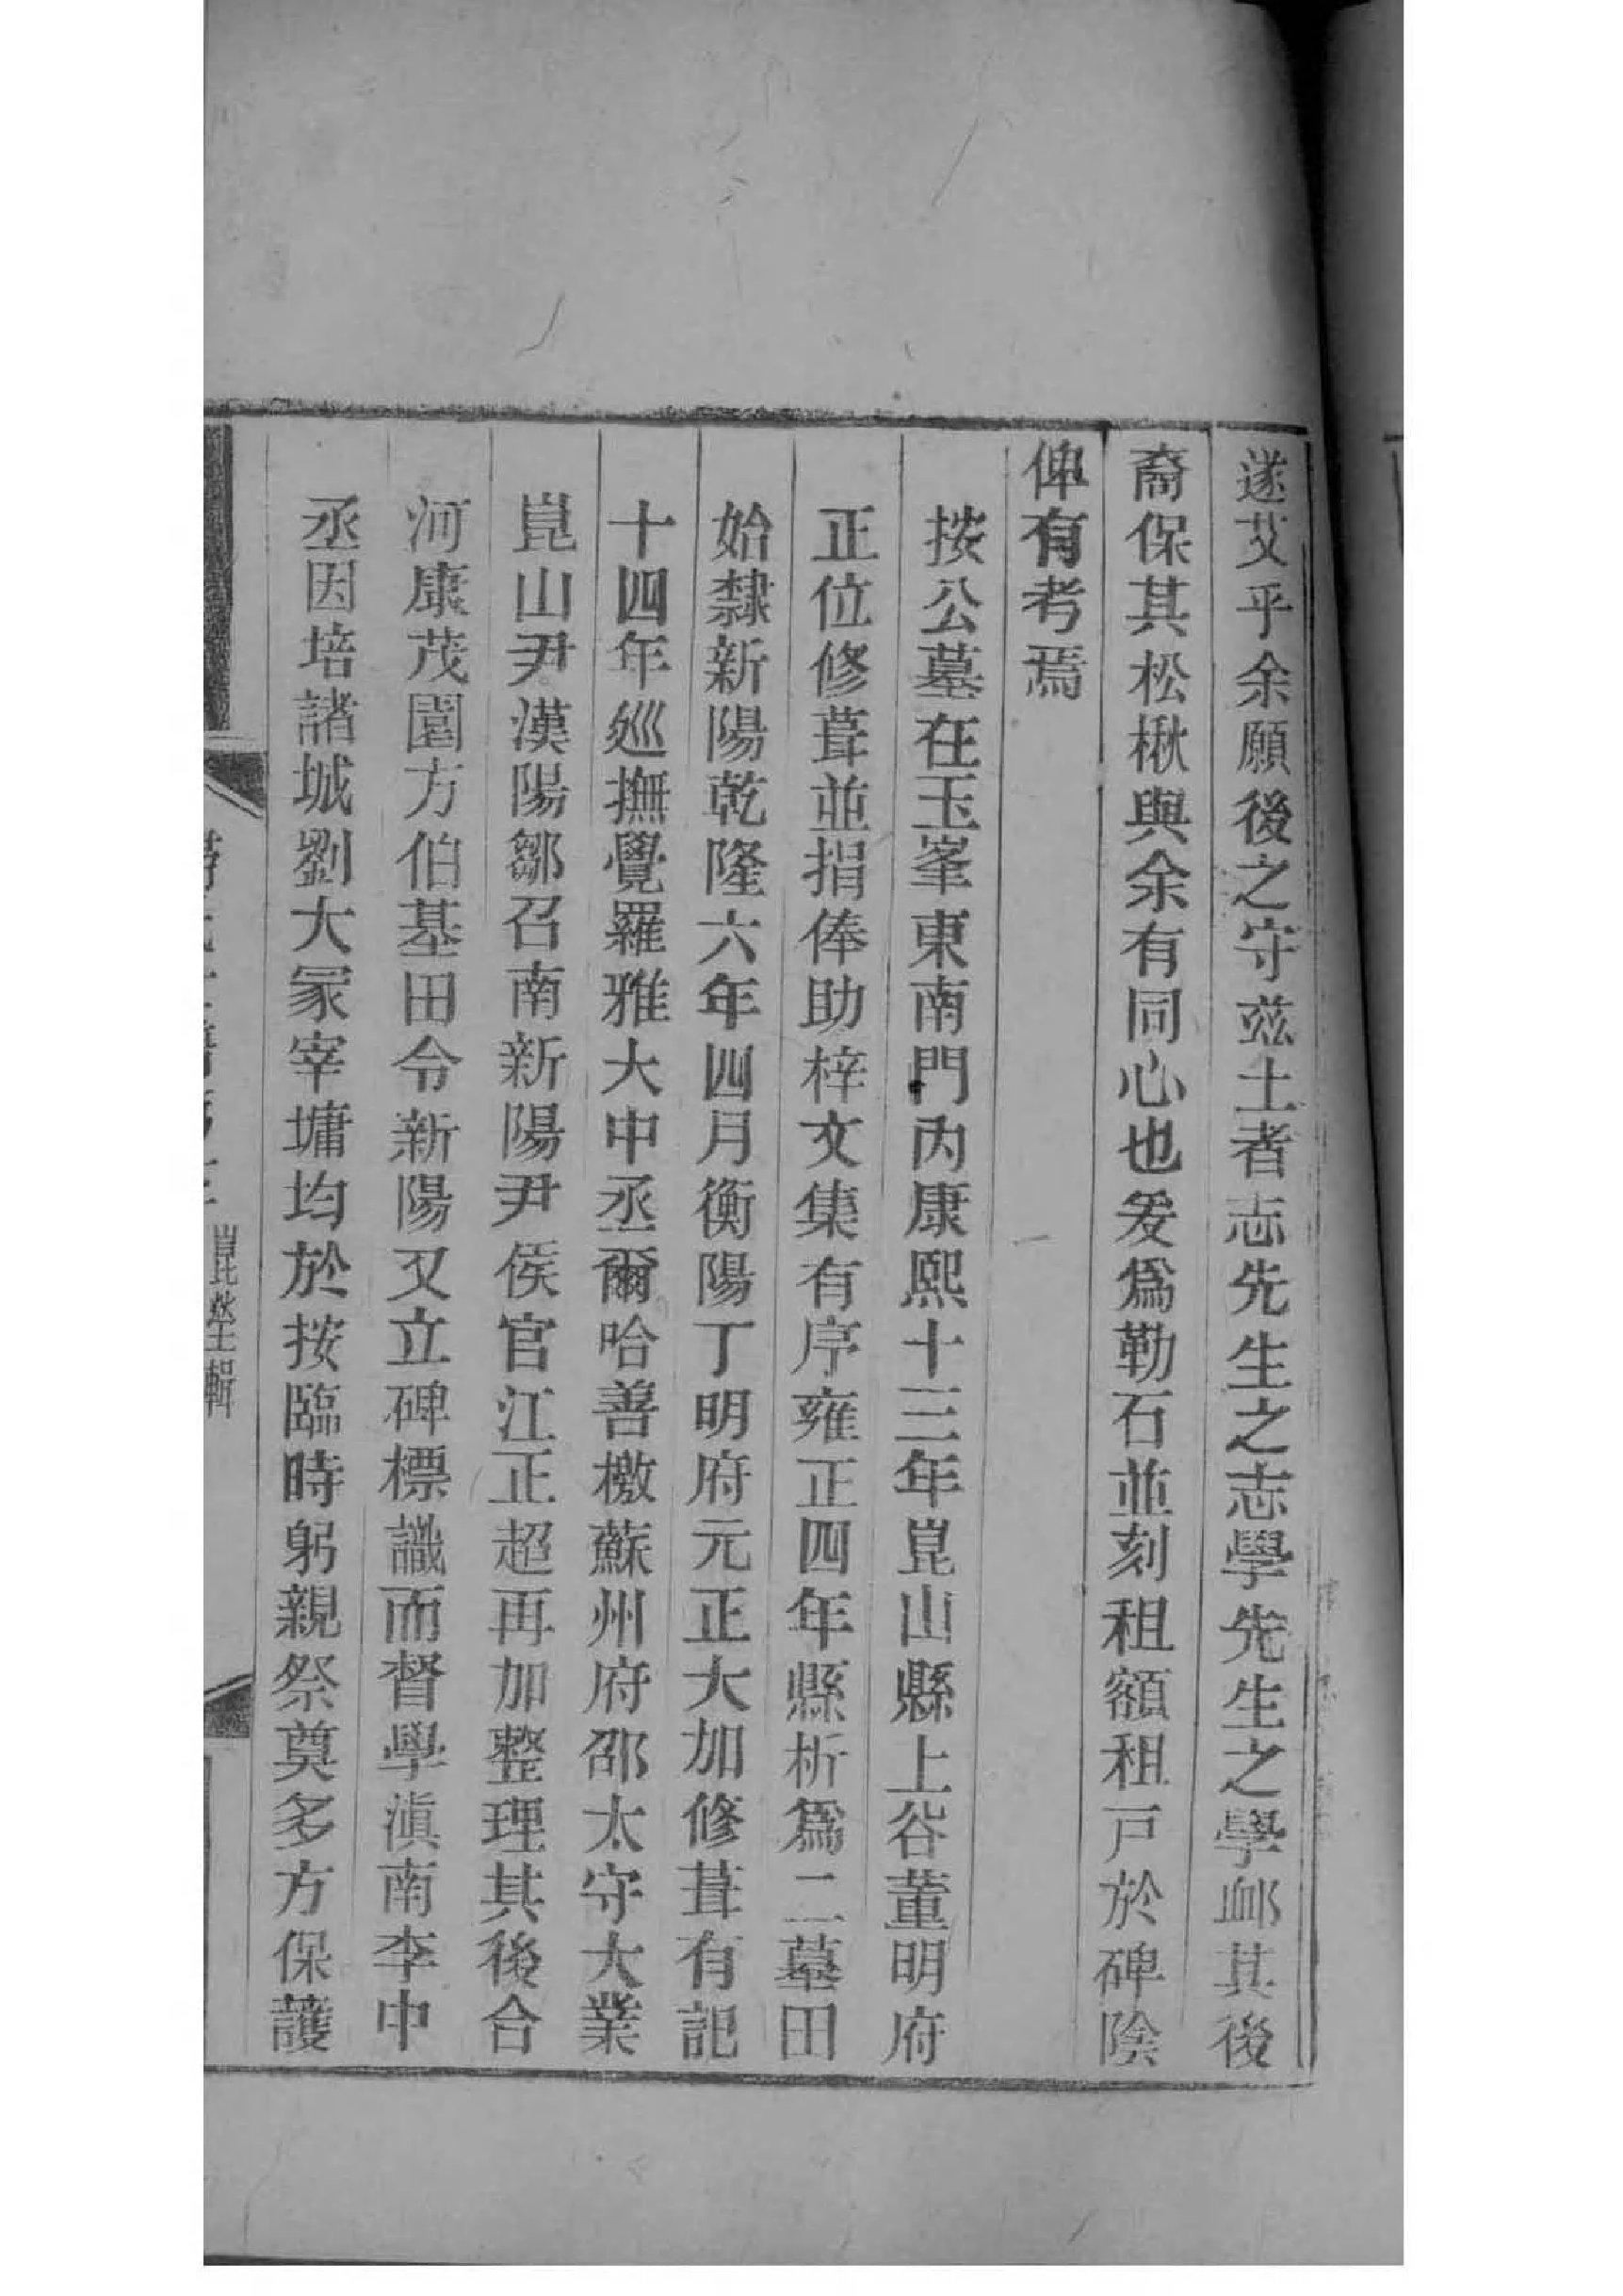 遂艾乎余願後之守茲土者志先生之志學先生之學卹其後
裔保其松楸與余有同心也爰爲勒石並刻租額租戸於碑陰
俾有考焉
按公墓在玉峯東南門內康熙十三年崑山縣上谷董明府
正位修葺並捐俸助梓文集有序雍正四年縣析爲二墓田
始隸新陽乾隆六年四月衡陽丁明府元正大加修葺有記
十四年巡撫覺羅雅大中丞爾哈善檄蘇州府邵太守大業
崑山尹漢陽鄒召南新陽尹侯官江正超再加整理其後合
河康茂園方伯基田令新陽又立碑標識而督學滇南李中
丞因培諸城劉大冢宰墉均於按臨時躬親祭奠多方保護